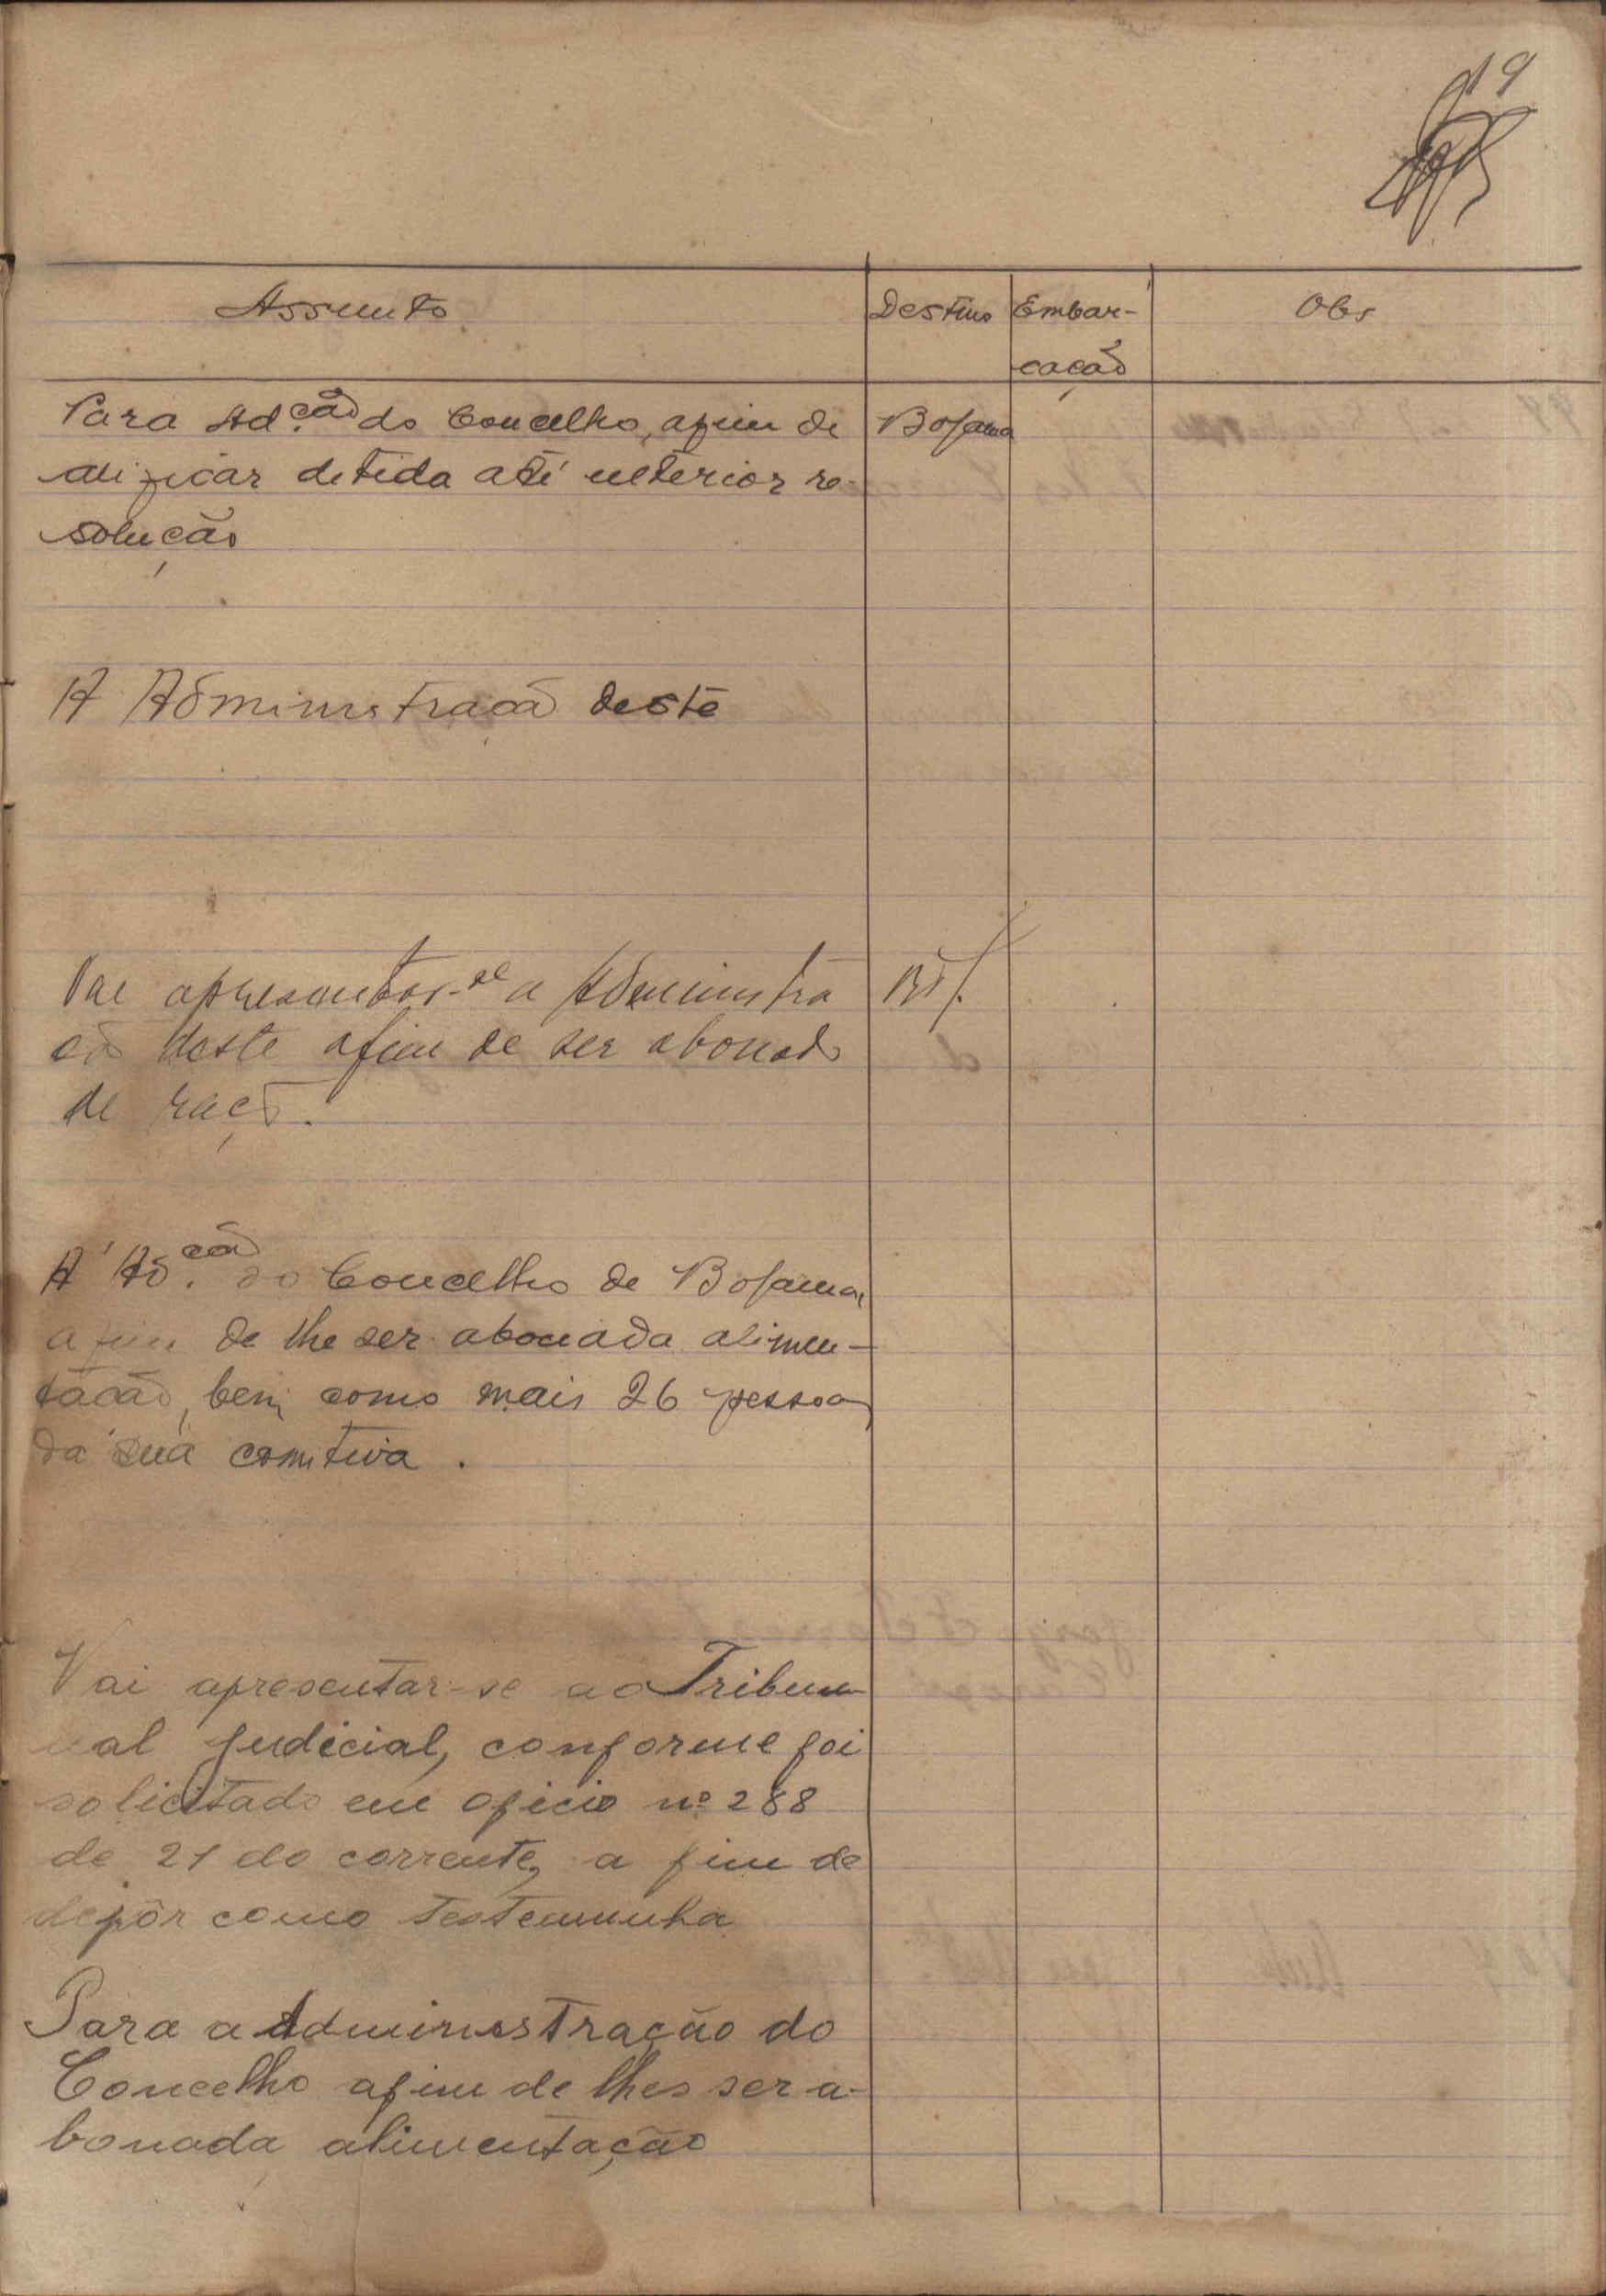 19
Assunto Destino Embar- Obs
cação
Para Ad.ção do Concelho, afim de Bolama
ali ficar detida até ulterior re-
solução
A Administração deste
Vae apresentar-se a Administra
ção deste afim de ser abonado
de ração.
A' Ad.ção do Concelho de Bolama,
a fim de lhe ser abonada alimen-
tação, bem como mais 26 pessoas
da sua comitiva.
Vai apresentar-se ao Tribu-
nal Judicial, conforme foi
solicitado em oficio nº 288
de 21 do corrente, a fim de
depôr como testemunha
Para a Administração do
Concelho afim de lhes ser a-
bonada alimentação